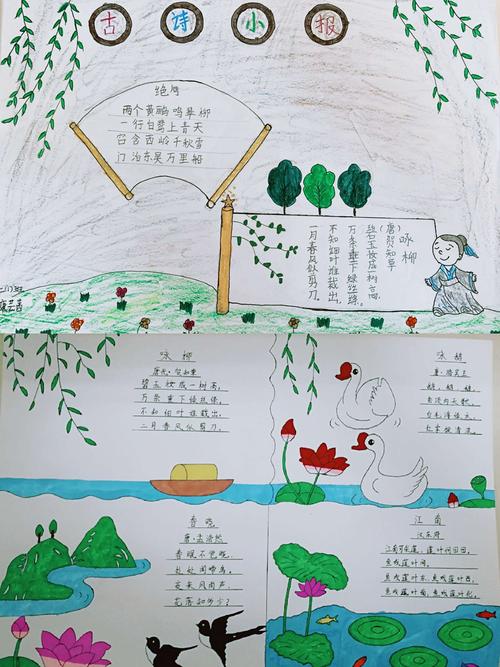 古诗小报
绝句
两个黄鹂鸣翠柳
一行白鹭上青天
窗含西岭千秋雪
门泊东吴万里船
咏柳
(唐)贺知章
碧玉妆成一树高,
万条垂下绿丝绦。
不知细叶谁裁出,
二月春风似剪刀。
咏柳
唐·贺知章
碧玉妆成一树高,
万条垂下绿丝绦,
不知细叶谁裁出,
二月春风似剪刀。
咏鹅
唐·骆宾王
鹅,鹅,鹅,
曲项向天歌,
白毛浮绿水,
红掌拨清波。
春晓
唐·孟浩然
春眠不觉晓,
处处闻啼鸟,
夜来风雨声,
花落知多少?
江南
汉乐府
江南可采莲,莲叶何田田,
鱼戏莲叶间,
鱼戏莲叶东,鱼戏莲叶西,
鱼戏莲叶南,鱼戏莲叶北。